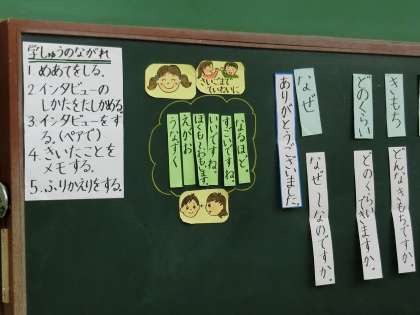 学しゅうのながれ
1.めあてをしる。
2 インタビューの
しかたをたしかめる。
3.インタビューをす
る。(ペアで)
4.きいたことを
メモする。
5.ふりかえりをする。
さいごまで
ていねいに
なるほど。
すごいですね。
いいですね。
ぼくもそうおもいます。
えがお
うなずく
ありがとうございました。
なぜ
なぜ しなのですか。
どのくらい
どのくらいいますか。
きもち
どんなきもちですか。